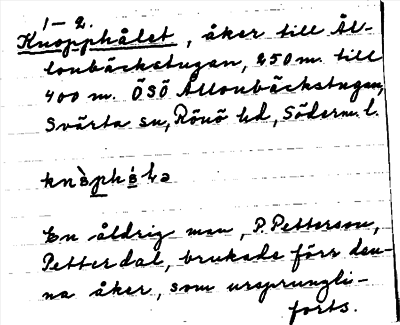 1-2.
Knopphålet, åker till Ål-
lonbäckstugan, 250 m. till
400 m. ÖSÖ Ållonbäckstugan,
Svärta sn, Rönö hd, Söderm. l.
En åldrig man, P. Petterson,
Petterdal, brukade förr den-
na åker, som ursprungli-
forts.